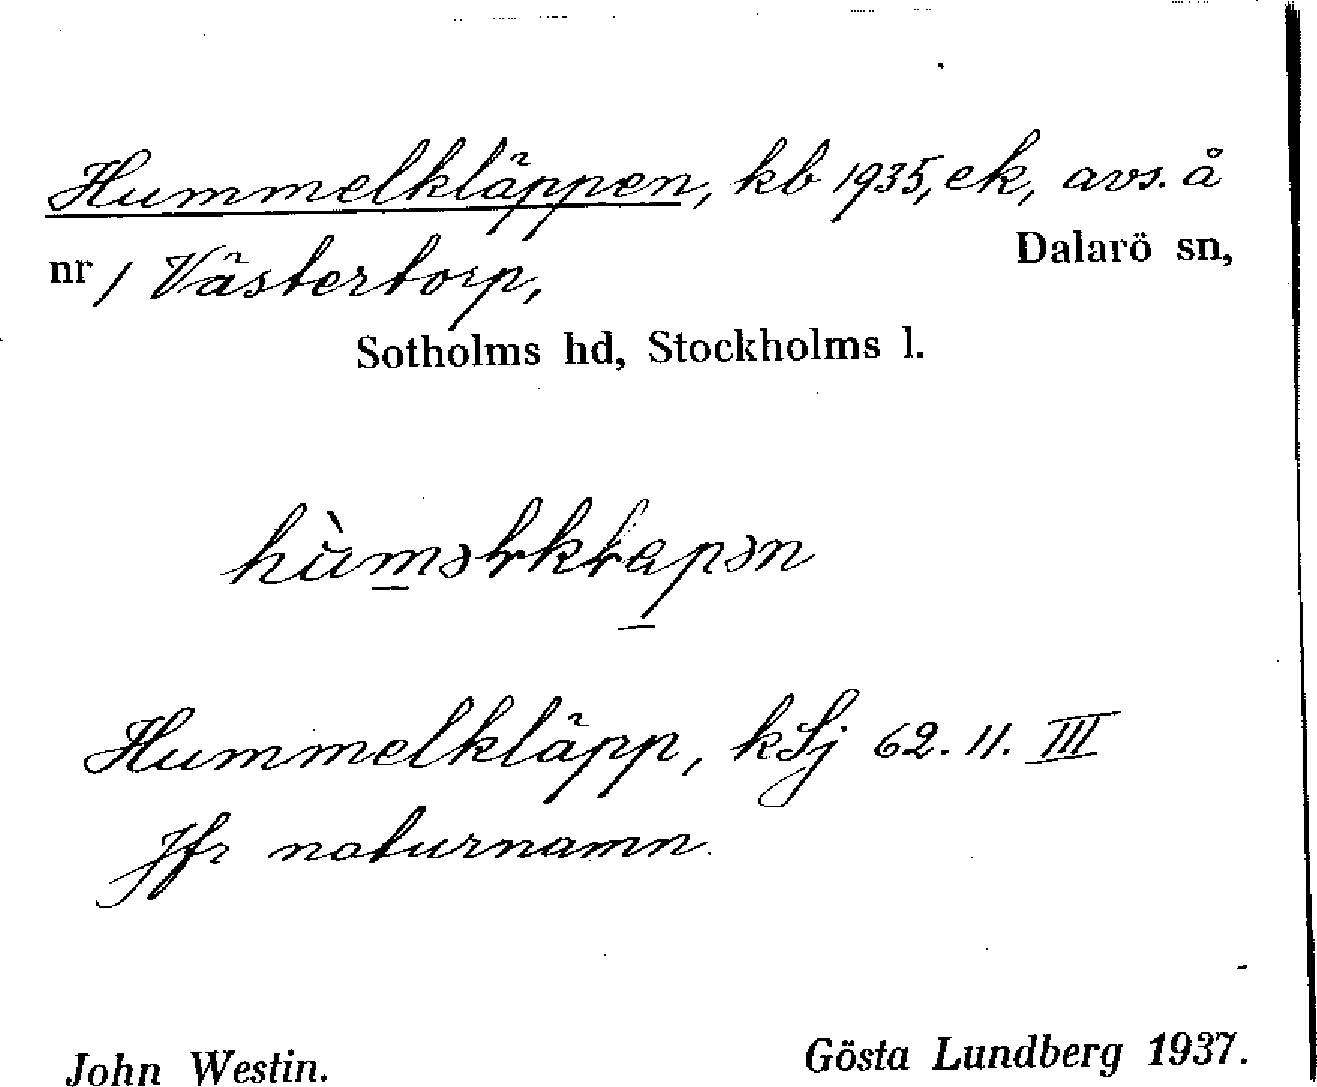 Hummelkläppen, kb 1935, ek, avs. å
nr 1 Västertorp, Dalarö sn,
Sotholms hd, Stockholms l.
Hummelkläpp, kSj 62. 11. III
Jfr naturnamn.
John Westin. Gösta Lundberg 1937.